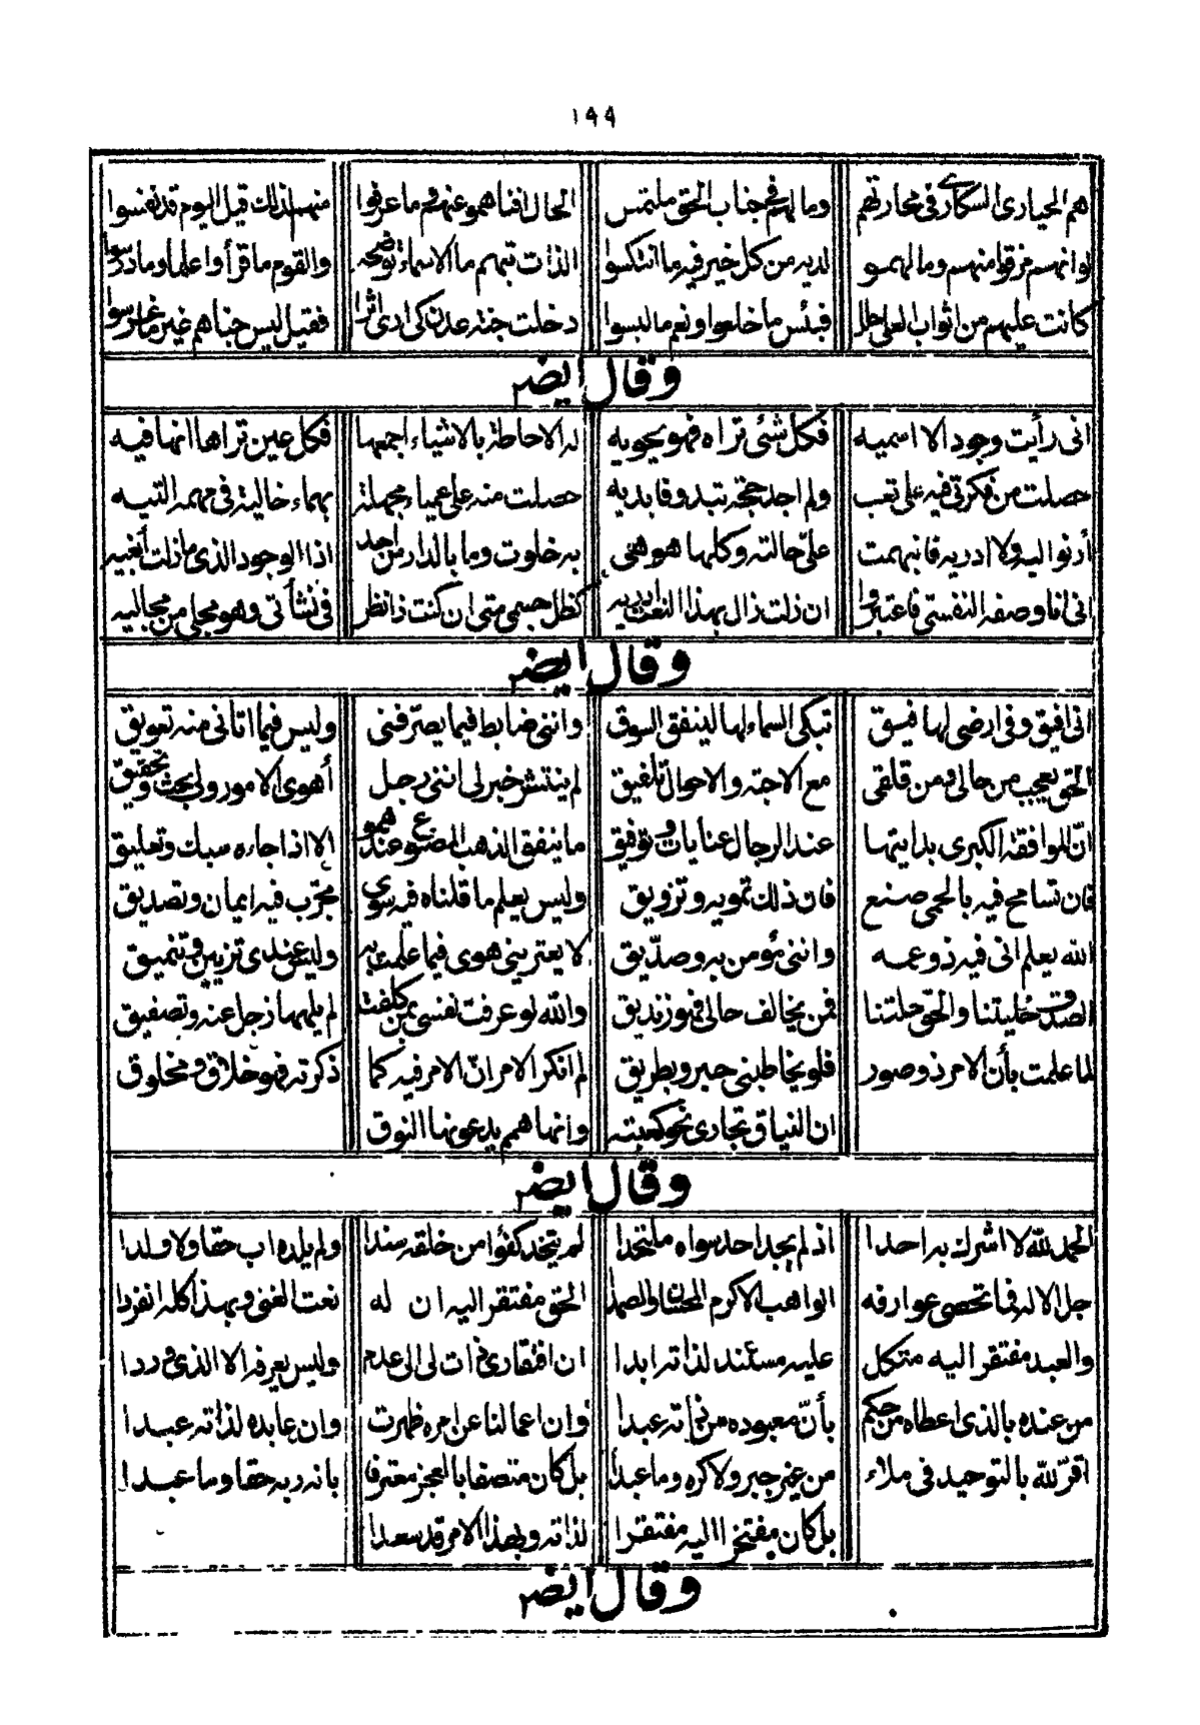 ١٩٩
هم الحيارى السكارى فى محارتهم وما لهم فى جناب الحق ملتمس الحال افناهمو عنهم فما عرفوا منهم لذلك قيل اليوم قد نفسوا
لو انهم فرقوا منهم وما لهمو لديه من كل خير فيه ما انتكسوا الذات تبهم ما الاسماء توضحه والقوم ما قرأوا علما وما درسوا
كانت عليهم من اثواب العلى حلل فبئس ما خلعوا ونعم ما لبسوا دخلت جنة عدن كى ارى اثرا فقيل ليس جناهم غير ما غرسوا
وقال ايضـ
انى رأيت وجودا لا اسميه فكل شئ تراه فهو يحويه له الاحاطة بالاشياء اجمعها فكل عين تراها انها فيه
حصلت من فكرتى فيه على تعب ولم اجد حجة تبدو فابديه حصلت منه على عمياء مجهلة بهماء خالية فى مهمه التيه
أدنو اليه ولا ادريه فانبهمت علىّ حالته وكلها هو هى به خلوت وما بالدار من احد اذا الوجود الذى ما زلت أبغيه
انى انا وصفه النفسى فاعتبروا ان زلت زال بهذا النعت ادريه كظل جسمى متى ان كنت ذا نظر فى نشأتى وهو مجلى من مجاليه
وقال ايضـ
انى افيق وفى ارضى لها فيسق تبكى السماء لها لينفق السوق واننى ضابط فيما يصرّفنى وليس فيما اتانى منه تعويق
الحق يعجب من حالى ومن قلقى مع الاحبة والاحوال تلفيق لم ينتشر خبر لى اننى رجل أهوى الامور ولى بحث وتحقيق
انّ الموافقة الكبرى بدايتها عند الرجال عنايات وتوفيق ما ينفق الذهب المصنوع عندهمو الا اذا جاءه سبك وتعليق
فان تسامح فيه بالحمى صنع فان ذلك تمويه وتزويق وليس يعلم ما قلناه فيه سوى مجرّب فيه ايمان وتصديق
الله يعلم انى فيه ذو عمه واننى مؤمن به وصدّيق لا يعترينى هوى فيما علمت به وليس عندى تزيين وتنميق
الصدق خليتنا والحق حلتنا فمن يخالف حالى فهو زنديق والله لو عرفت نفسى بمن كلفت لم يلهها زجل عنه وتصفيق
لما علمت بأن الامر ذو صور فلو يخاطبنى حبر وبطريق لم انكر الامر انّ الامر فيه كما ذكرته فهو خلاق ومخلوق
ان النياق تجارى نحو كعبته وانها همم يدعونها النوق
وقال ايضـ
الحمد لله لا اشرك به احدا اذ لم يجد احد سواه ملتحدا لم يتخذ كفؤا من خلقه سندا ولم يلده اب حقا ولا ولدا
جل الاله فما تحصى عوارفه الواهب الاكرم المحسان والصمدا الحق مفتقر اليه ان له نعت الغنى وبهذا كله انفردا
والعبد مفتقر اليه متكل عليه مستند لذاته ابدا ان افتقارى ذات لى الى عدم وليس يعرفه الا الذى وردا
من عنده بالذى اعطاه من حكم بأنّ معبوده من ذاته عبدا وان اعمالنا عن امره ظهرت وان عابده لذاته عبدا
اقرّ لله بالتوحيد فى ملاء من غير جبر ولا كره وما عبدا بل كان متصفا بالعجز معترفا بانه ربه حقا وما عبدا
بل كان مفتخرا اليه مفتقرا لذاته وبهذا الامر قد سعدا
وقال ايضـ